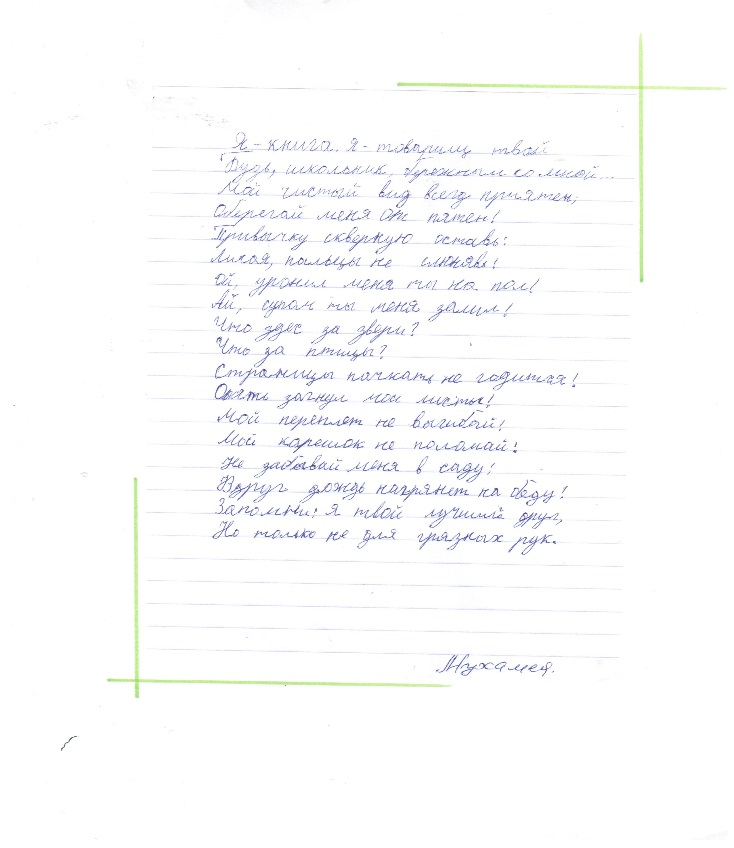 Я - книга. Я - товарищ твой
Будь, школьник, бережным со мной...
Мой чистый вид всегд приятен,
Оберегай меня от пятен!
Привычку скверную оставь:
Листая, пальцы не слюнявь!
Ой, уронил меня ты на пол!
Ай, супом ты меня залил!
Что здес за звери?
Что за птицы?
Страницы пачкать не годится!
Опять загнул мои листы!
Мой переплет не выгибай!
Мой карешок не поломай!
Не забывай меня в саду!
Вдруг дождь нагрянет на беду!
Запомни: я твой лучший друг,
Но только не для грязных рук.
Мухамед.